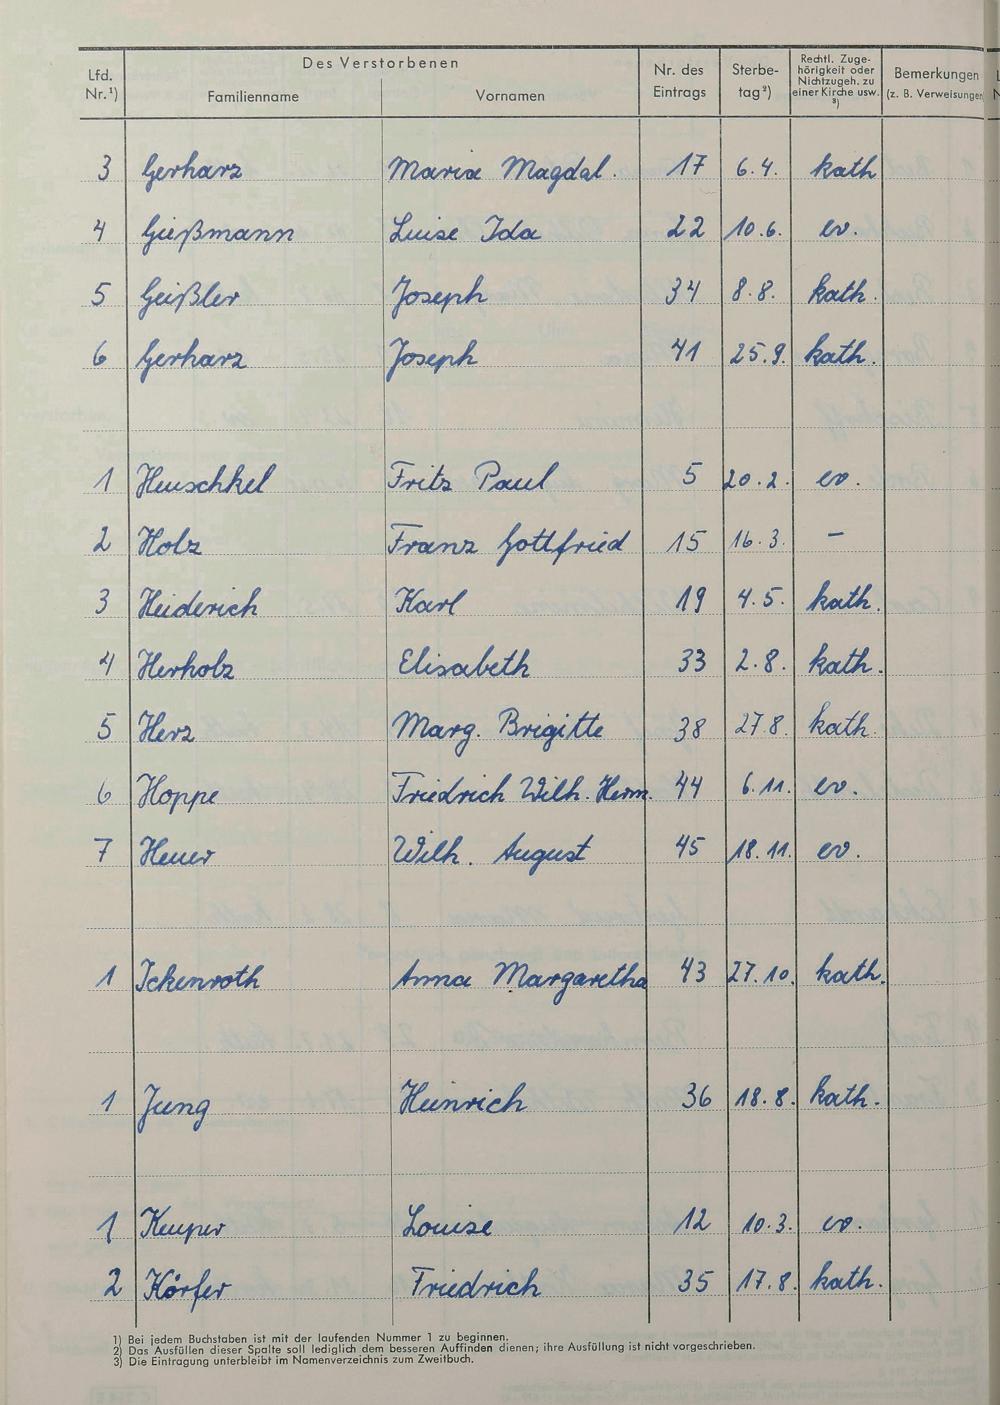 Lfd. Nr.¹) Des Verstorbenen Familienname Vornamen Nr. des Eintrags Sterbetag²) Rechtl. Zugehörigkeit oder Nichtzugeh. zu einer Kirche usw. ³) Bemerkungen (z. B. Verweisungen)
3 Gerharz Maria Magdal. 17 6.4. kath
4 Gießmann Luise Ida 22 10.6. ev.
5 Geißler Joseph 34 8.8. kath.
6 Gerharz Joseph 41 25.9. kath.
1 Henschkel Fritz Paul 5 20.2. ev.
2 Holz Franz Gottfried 15 16.3. –
3 Heiderich Karl 19 4.5. kath.
4 Herholz Elisabeth 33 2.8. kath.
5 Herz Marg. Brigitte 38 27.8. kath.
6 Hoppe Friedrich Wilh. Herm. 44 6.11. ev.
7 Heuer Wilh. August 45 18.11. ev.
1 Ickenroth Anna Margaretha 43 27.10. kath.
1 Jung Heinrich 36 18.8. kath.
1 Keuper Louise 12 10.3. ev.
2 Körfer Friedrich 35 17.8. kath.
1) Bei jedem Buchstaben ist mit der laufenden Nummer 1 zu beginnen.
2) Das Ausfüllen dieser Spalte soll lediglich dem besseren Auffinden dienen; ihre Ausfüllung ist nicht vorgeschrieben.
3) Die Eintragung unterbleibt im Namenverzeichnis zum Zweitbuch.